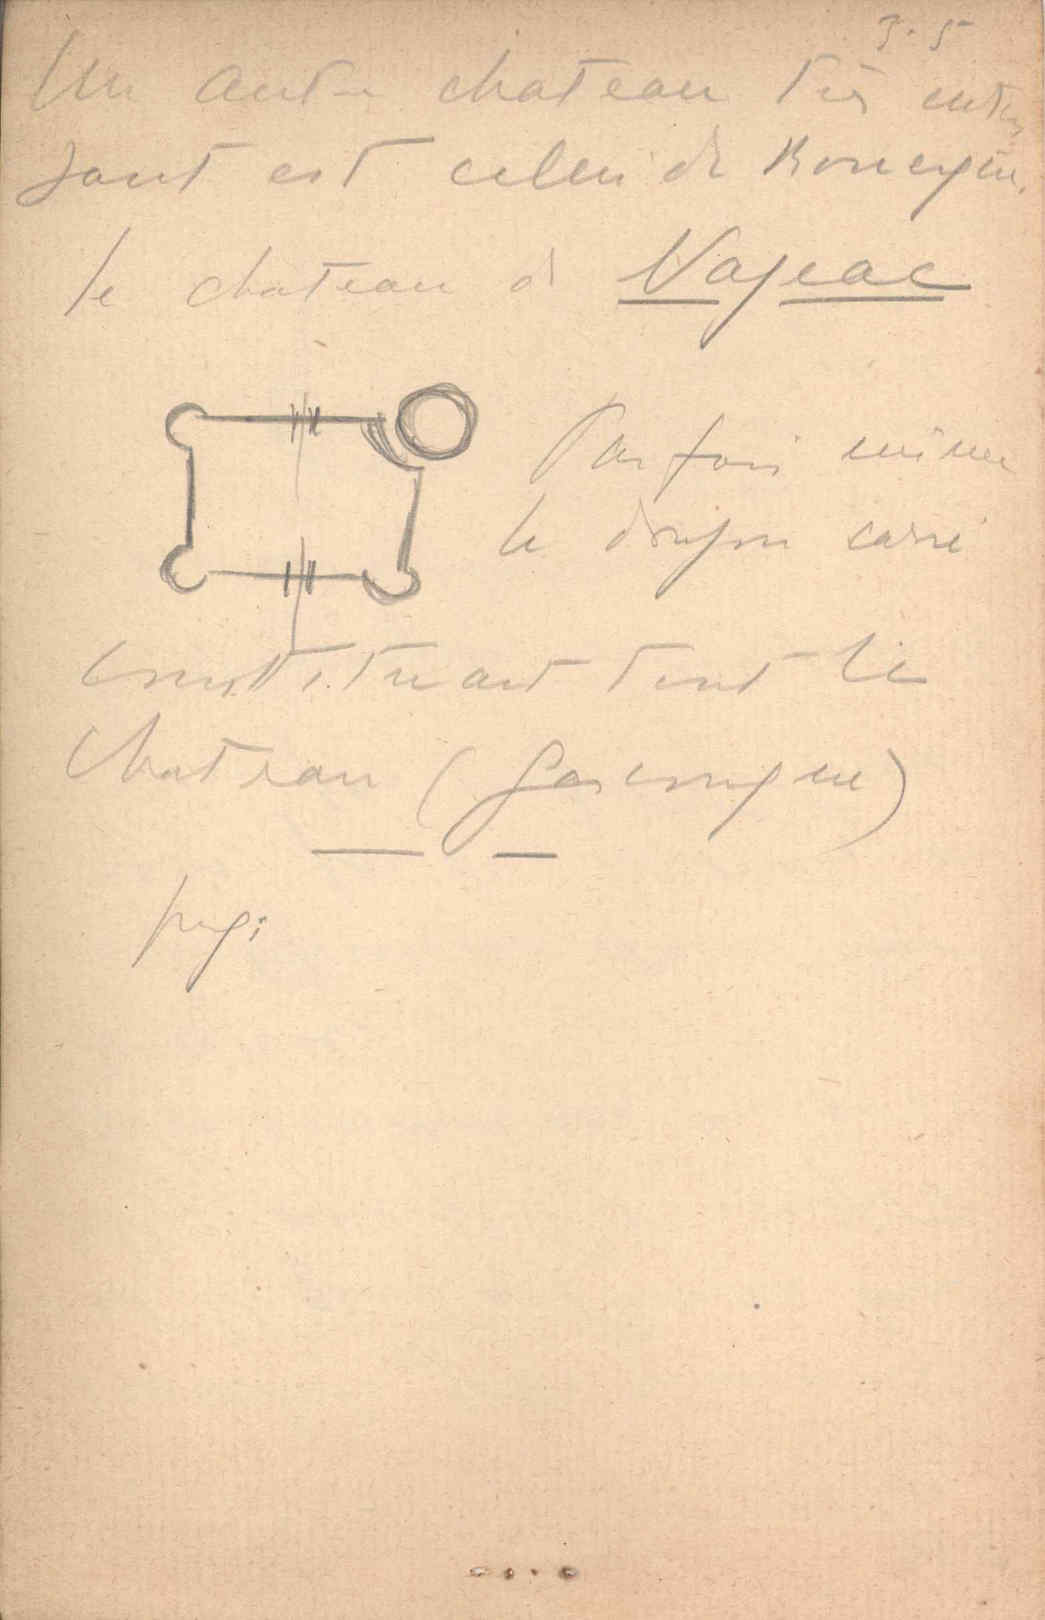 3.5
Un autre chateau très intéres
sant est celui de Rouergue.
le chateau de Najeac
Parfois même
le donjon carré
constituant tout le
chateau (Gascogne)